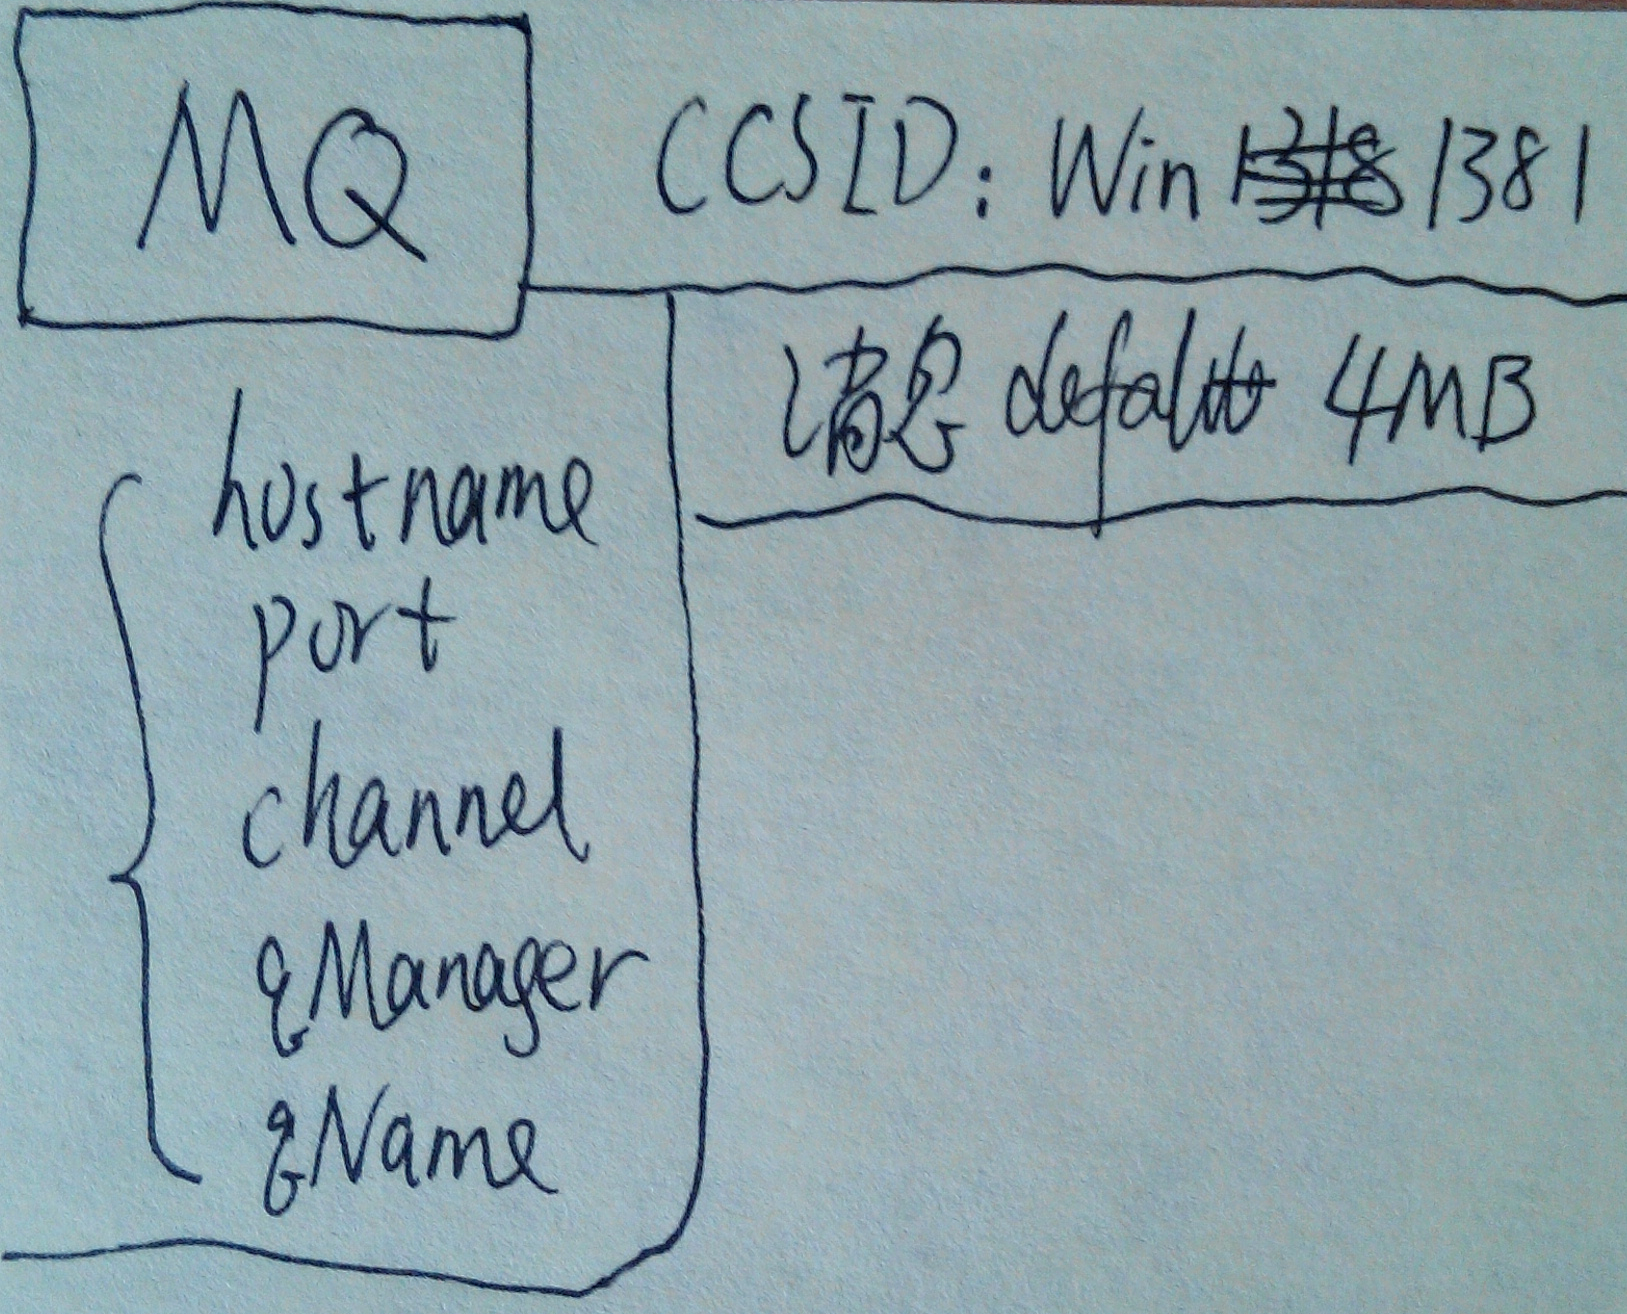 MQ
CCSID: Win 1381
消息 defalt 4MB
hostname
port
channel
qManager
qName